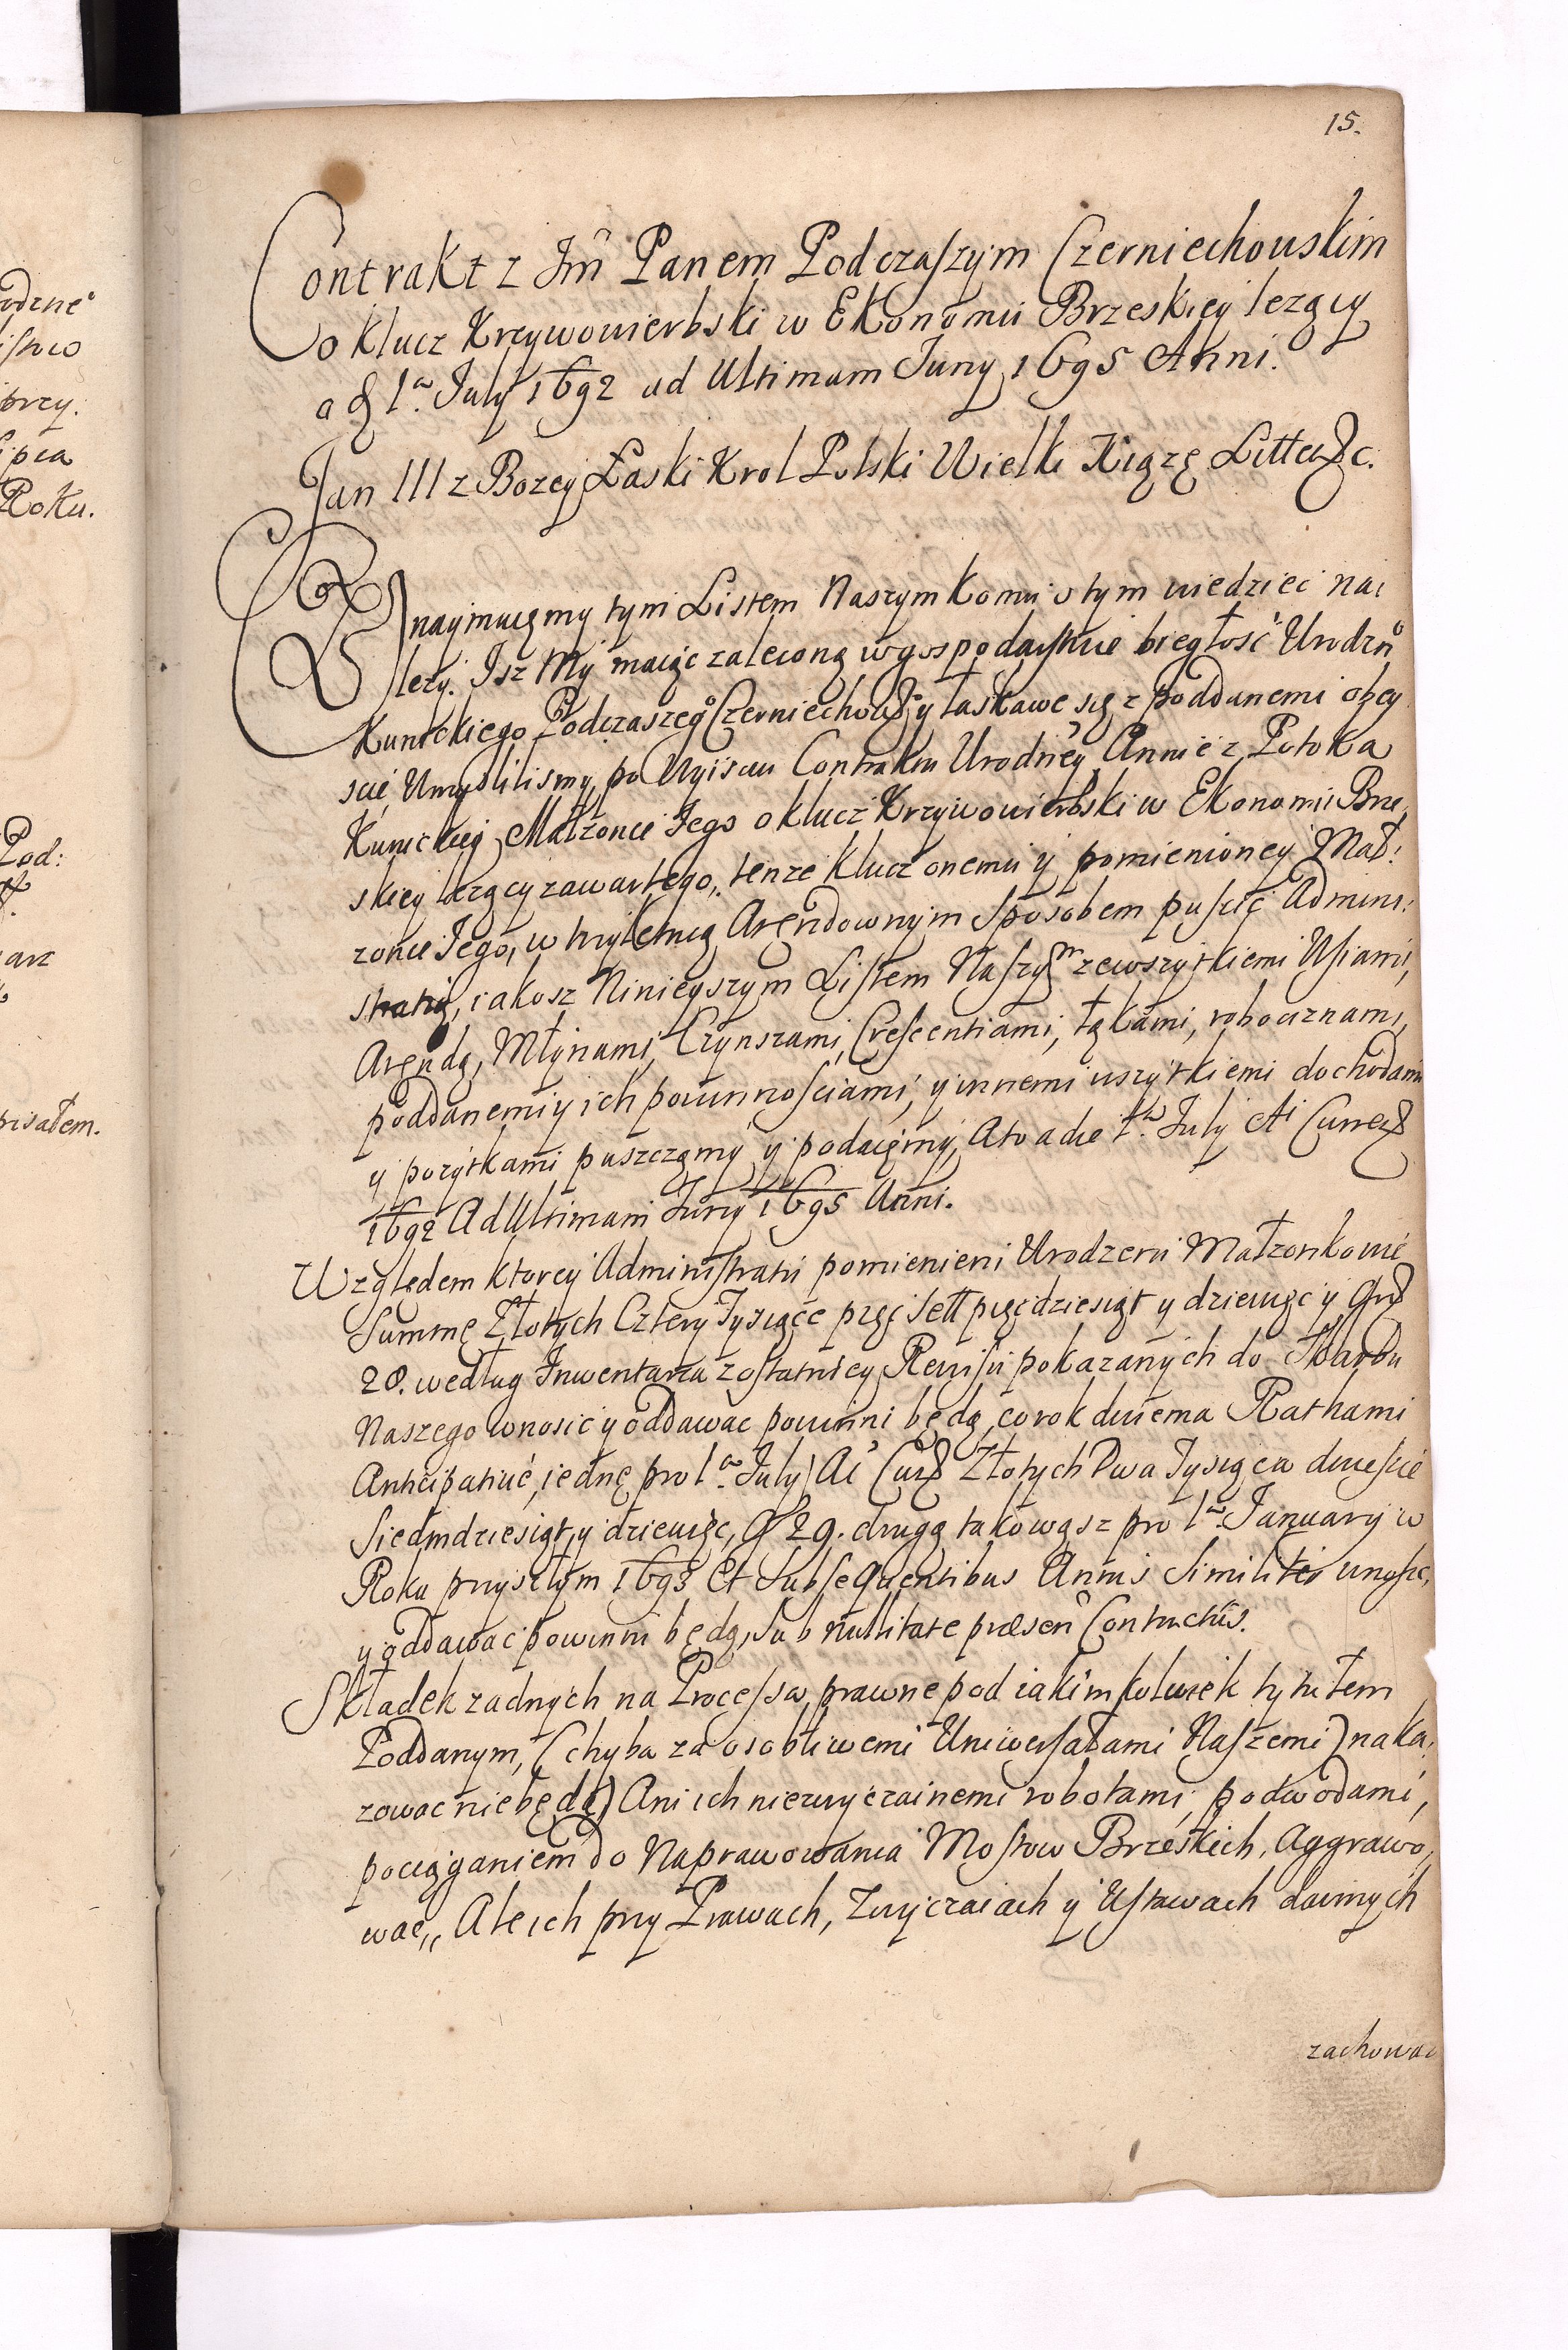 15.
Contrakt z Jm Panem Podczaszym Czerniechouskim
o Klucz Krzywowierbski w Ekonomii Brzeskiey lezący
a 1ᵃ July 1692 ad Ultimam Juny 1695 Anni.
Jan III z Bozey Łaski Krol Polski Wielki Xiązę Litte &c.
Oznaymuięmy tym Listem Naszym Komu o tym wiedziec nai
lezy. Isz My maiąc zaleconą w gospodarstwie biegłosc Urodzo
Kunickiego Podczaszego Czerniechow y łaskawe się z poddanemi obey
scie, Umyslilismy po Wyisciu Contraktu Urodney Annie z Potoka
Kunickiey Małzonce Iego o klucz Krzywowierbski w Ekonomii Brze,
skiey lezący zawartego, tenze klucz onemu y pomienioney Mał:
zonce Iego, w trzyletnią Arędownym sposobem puscic Admini:
stratią, iakosz Ninieyszym Listem Naszym ze wszytkiemi Wsiami,
Arędą, Młynami, Czynszami, Crescentiami, łąkami, robociznami,
poddanemi y ich powinnosciami, y innemi wszytkiemi dochodami
y pozytkami puszczamy y podaięmy, A to a die 1ᵃ July Ai Curren
1692 Ad Ultimam Juny 1695 Anni.
Względem ktorey Administratii pomienieni Urodzeni Małzonkowie
Summę Złotych Cztery Tysiące pięc sett pięcdziesiąt y dziewięc y Gr
28. według Inwentarza z ostatniey Rewisii pokazanych do Skarbu
Naszego wnosic y oddawac powinni będą, co rok dwiema Rathami
Anticipative, iednę pro 1ᵃ July Ai Cur Złotych Dwa Tysiąca dwiescie
Siedmdziesiąt y dziewięc, G 29. drugą takowąsz pro 1ᵃ January w
Roku przyszłym 1693 Et Subsequentibus Annis Similiter wnosic,
y oddawac powinni będą, sub nullitate præsen Contractus.
Składek zadnych na Processa prawne pod iakimkolwiek tytułem
Poddanym, (chyba za osobliwemi Uniwersałami Naszemi) naka:
zowac nie będą) Ani ich niezwyczainemi robotami, podwodami,
pociąganiem do Naprawowania Mostow Brzeskich, Aggrawo,
wac,, Ale ich przy Prawach, Zwyczaiach y Ustawach dawnych
zachowac